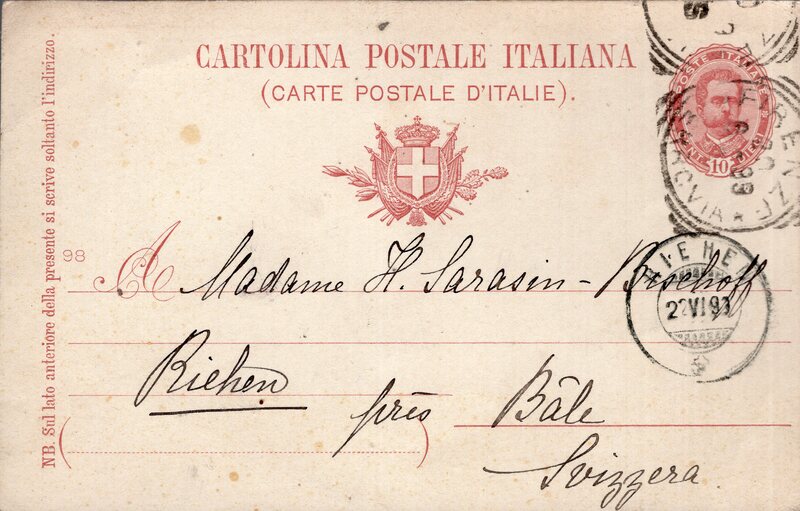 CARTOLINA POSTALE ITALIANA
(CARTE POSTALE D'ITALIE).
POSTE ITALIANE
10
NB. Sul lato anteriore della presente si scrive soltanto l'indirizzo.
98
A Madame H. Sarasin-Bischoff
RIEHEN
22 VI 93
Riehen près Bâle
Svizzera